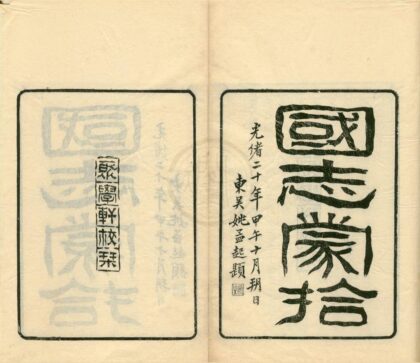 國志蒙拾
光緒二十年甲午十月朔日
東吳姚孟起題
聚學軒校栞